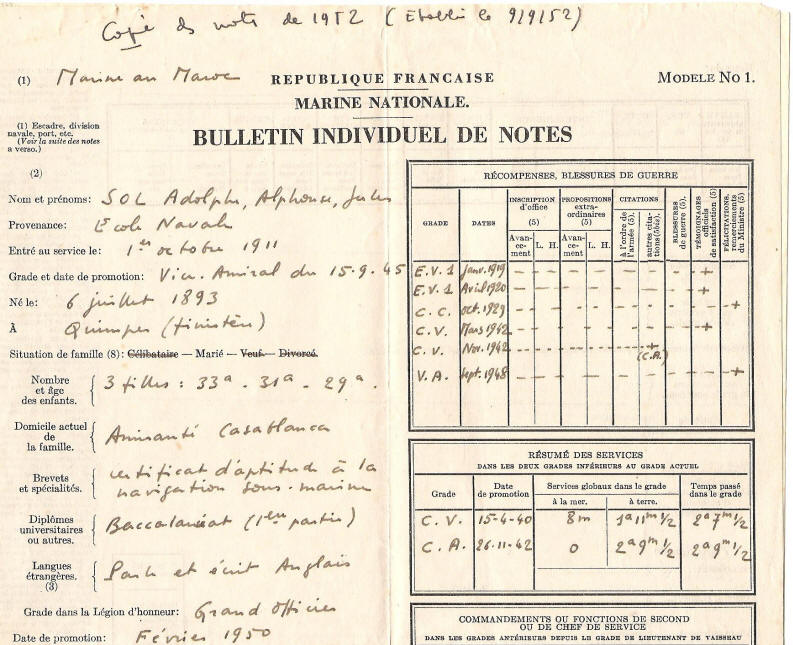 Copie des notes de 1952 (Etablie le 9/9/52)
(1) Marine au Maroc
REPUBLIQUE FRANCAISE
MODELE NO 1.
MARINE NATIONALE.
(1) Escadre, division
navale, port, etc.
(Voir la suite des notes
a verso.)
BULLETIN INDIVIDUEL DE NOTES
(2)
Nom et prénoms: SOL Adolphe, Alphonse, Jules
Provenance: Ecole Navale
Entré au service le: 1er octobre 1911
Grade et date de promotion: Vice. Amiral du 15-9-45
Né le: 6 juillet 1893
À Quimper (finistère)
Situation de famille (8): Célibataire — Marié — Veuf. — Divorcé.
Nombre
et âge
des enfants.
3 filles : 33a - 31a - 29a.
Domicile actuel
de
la famille.
Amirauté Casablanca
Brevets
et spécialités.
certificat d'aptitude à la
navigation sous-marine
Diplômes
universitaires
ou autres.
Baccalauréat (1ère partie)
Langues
étrangères.
(3)
Parle et écrit Anglais
Grade dans la Légion d'honneur: Grand Officier
Date de promotion: Février 1950
RÉCOMPENSES, BLESSURES DE GUERRE
GRADE
DATES
INSCRIPTION
d'office
(5)
PROPOSITIONS
extra-
ordinaires
(5)
CITATIONS
à l'ordre de
l'armée (5).
autres cita-
tions (5bis).
BLESSURES
de guerre (5).
TÉMOIGNAGES
officiels
de satisfaction (5)
FÉLICITATIONS,
remerciements
du Ministre (5)
Avan-
ce-
ment
L. H.
Avan-
ce-
ment
L. H.
E.V.1 Janv. 1919 - - - - - - - +
E.V.1 Avril 1920 - - - - - - - +
C. C. oct. 1929 - - - - - - - - +
C. V. Mars 1942 - - - - - - - +
C. V. Nov. 1942 - - - - - +
(C.A.)
V. A. Sept. 1948 - - - - - - - - +
RÉSUMÉ DES SERVICES
DANS LES DEUX GRADES INFÉRIEURS AU GRADE ACTUEL
Grade
Date
de promotion
Services globaux dans le grade
à la mer.
à terre.
Temps passé
dans le grade
C. V. 15-4-40 8m 1a 11m 1/2 2a 7m 1/2
C. A. 26-11-42 0 2a 9m 1/2 2a 9m 1/2
COMMANDEMENTS OU FONCTIONS DE SECOND
OU DE CHEF DE SERVICE
DANS LES GRADES ANTÉRIEURS DEPUIS LE GRADE DE LIEUTENANT DE VAISSEAU